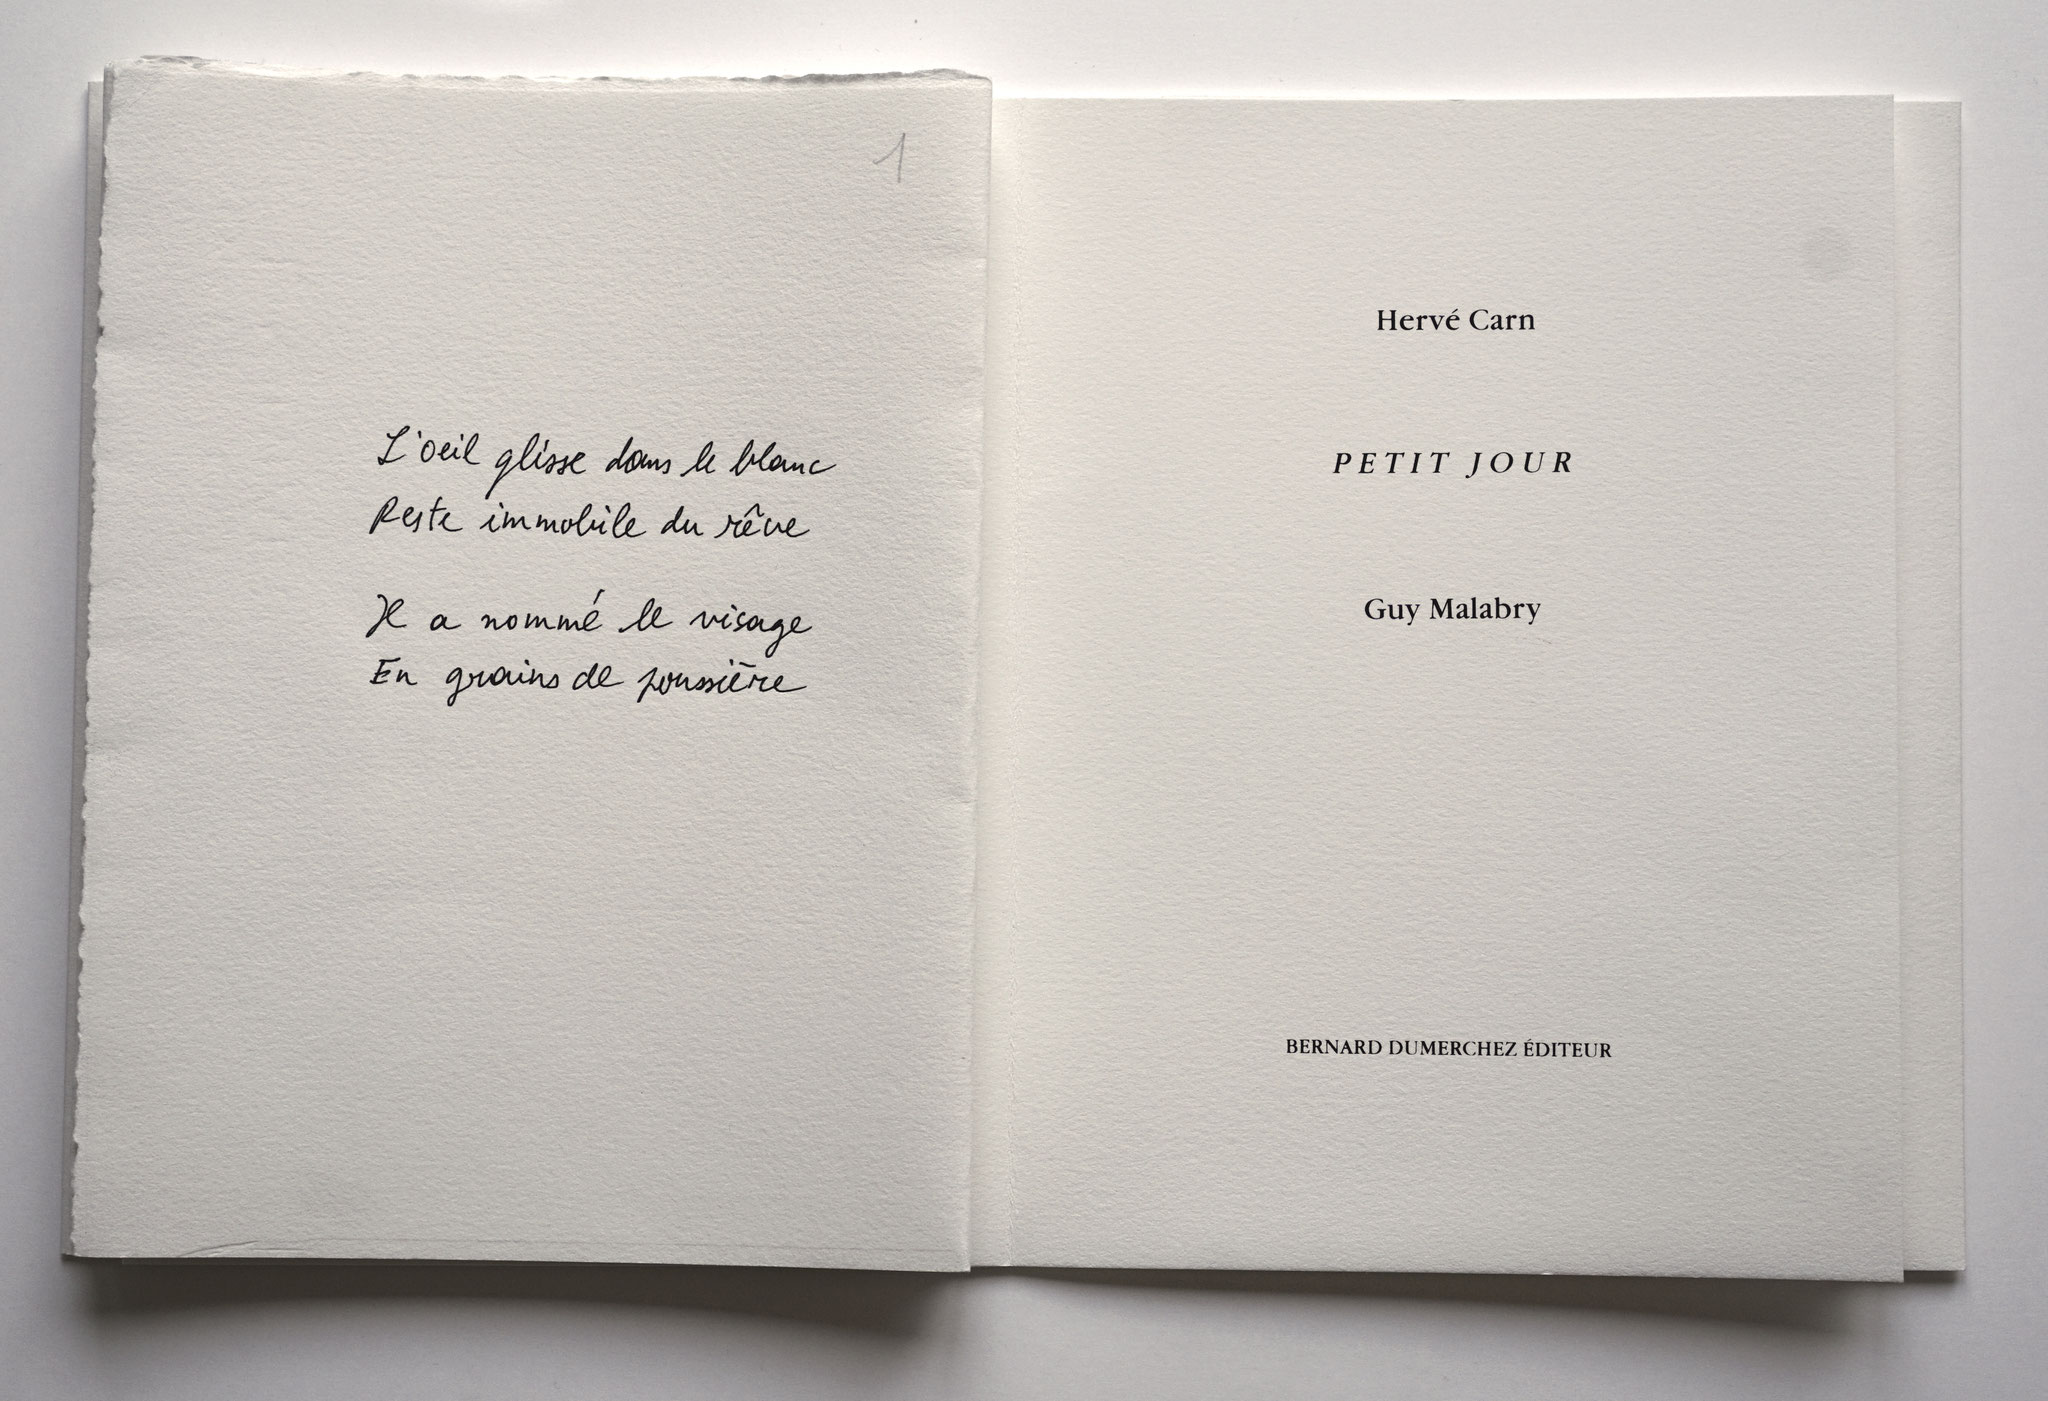 1
L'oeil glisse dans le blanc
Reste immobile du rêve
Il a nommé le visage
En grains de poussière
Hervé Carn
PETIT JOUR
Guy Malabry
BERNARD DUMERCHEZ ÉDITEUR